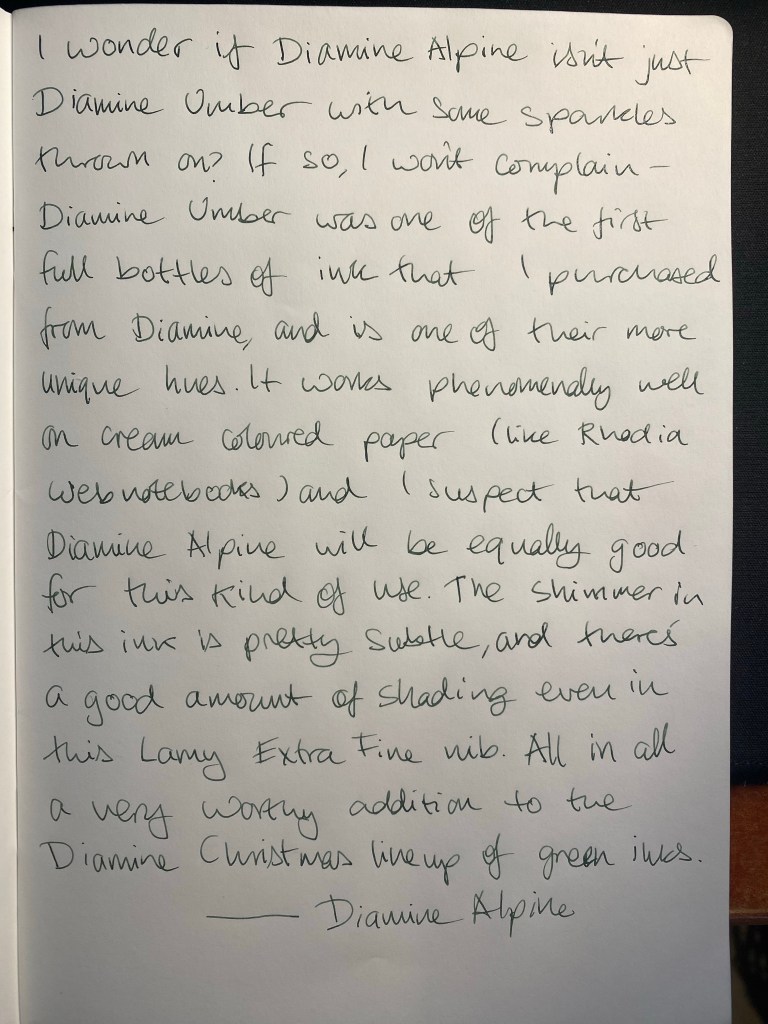 I wonder if Diamine Alpine isn't just
Diamine Umber with some sparkles
thrown on? If so, I won't complain –
Diamine Umber was one of the first
full bottles of ink that I purchased
from Diamine, and is one of their more
unique hues. It works phenomenally well
on cream coloured paper (like Rhodia
webnotebooks) and I suspect that
Diamine Alpine will be equally good
for this kind of use. The shimmer in
this ink is pretty subtle, and there's
a good amount of shading even in
this Lamy Extra Fine nib. All in all
a very worthy addition to the
Diamine Christmas lineup of green inks.
— Diamine Alpine